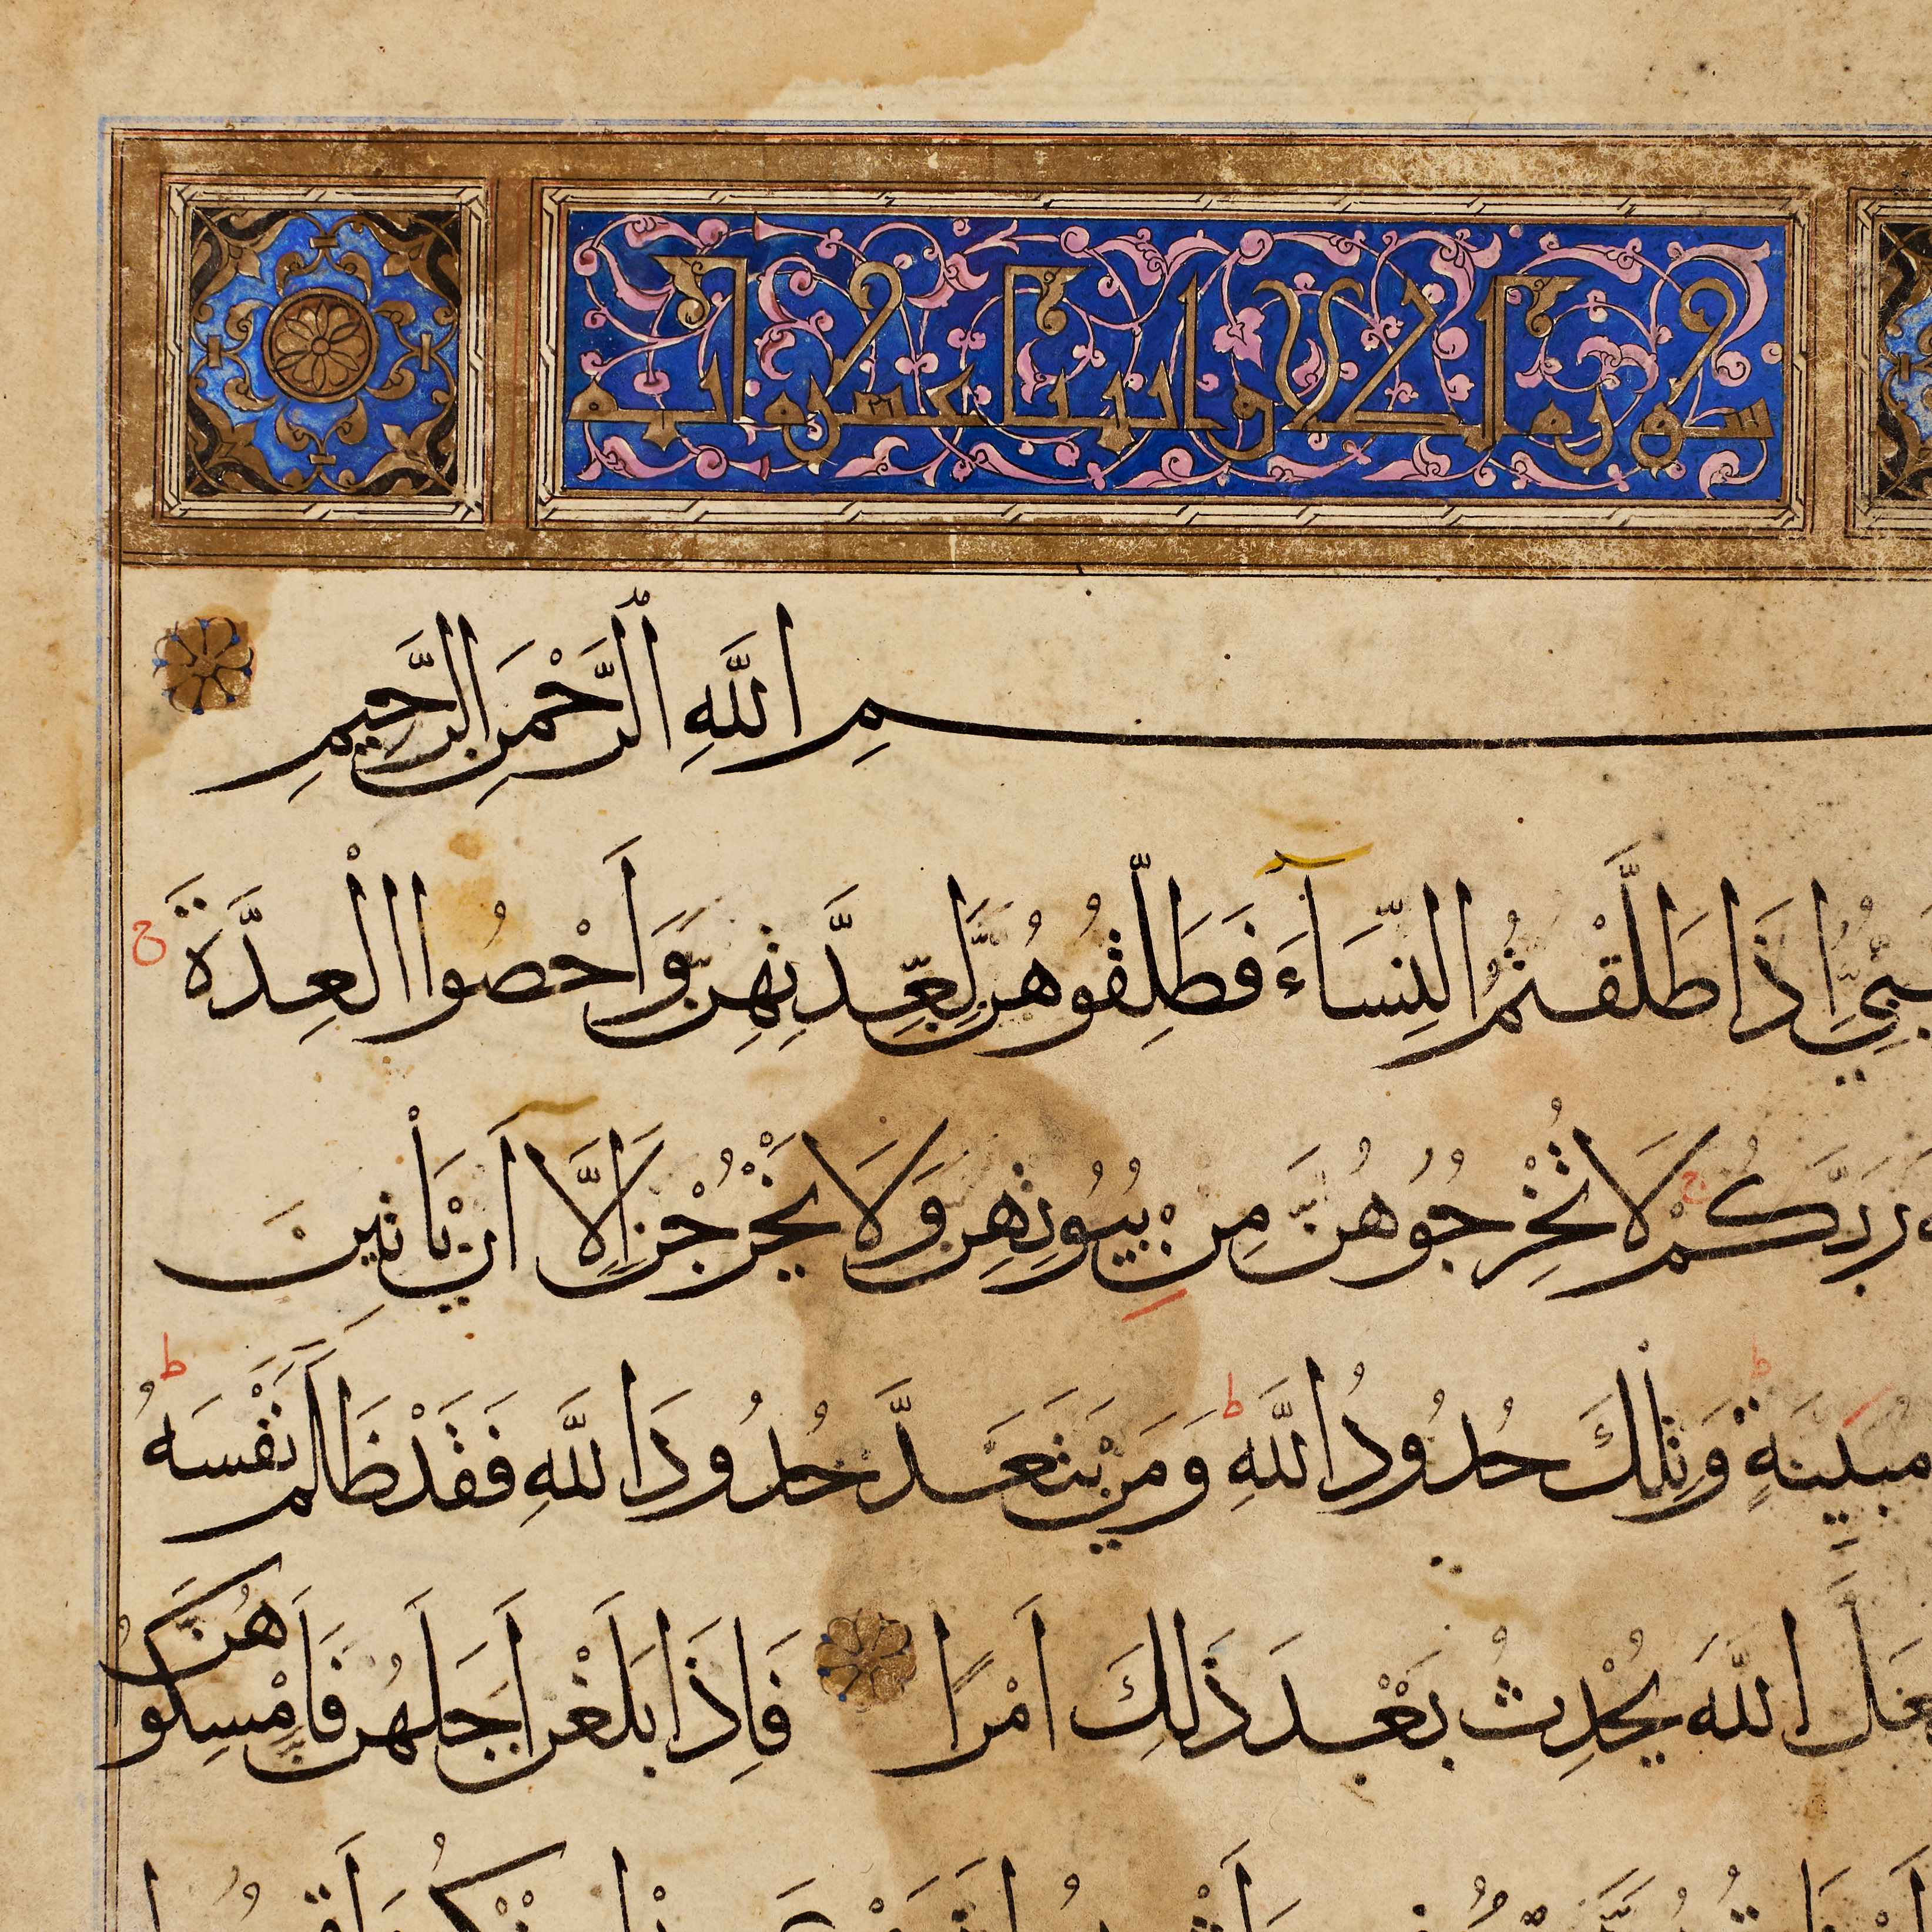 سورة الطلاق اثنتا عشرة آية
سمِ اللَّهِ الرَّحْمَنِ الرَّحِيمِ
إِذَا طَلَّقْتُمُ النِّسَآءَ فَطَلِّقُوهُنَّ لِعِدَّتِهِنَّ وَأَحْصُوا الْعِدَّةَ ج
رَبَّكُمْ ج لَا تُخْرِجُوهُنَّ مِنْ بُيُوتِهِنَّ وَلَا يَخْرُجْنَ إِلَّا أَنْ يَأْتِينَ
مُبَيِّنَةٍ ط وَتِلْكَ حُدُودُ اللَّهِ ط وَمَنْ يَتَعَدَّ حُدُودَ اللَّهِ فَقَدْ ظَلَمَ نَفْسَهُ ط
اللَّهَ يُحْدِثُ بَعْدَ ذَلِكَ أَمْرًا فَإِذَا بَلَغْنَ أَجَلَهُنَّ فَأَمْسِكُوهُنَّ